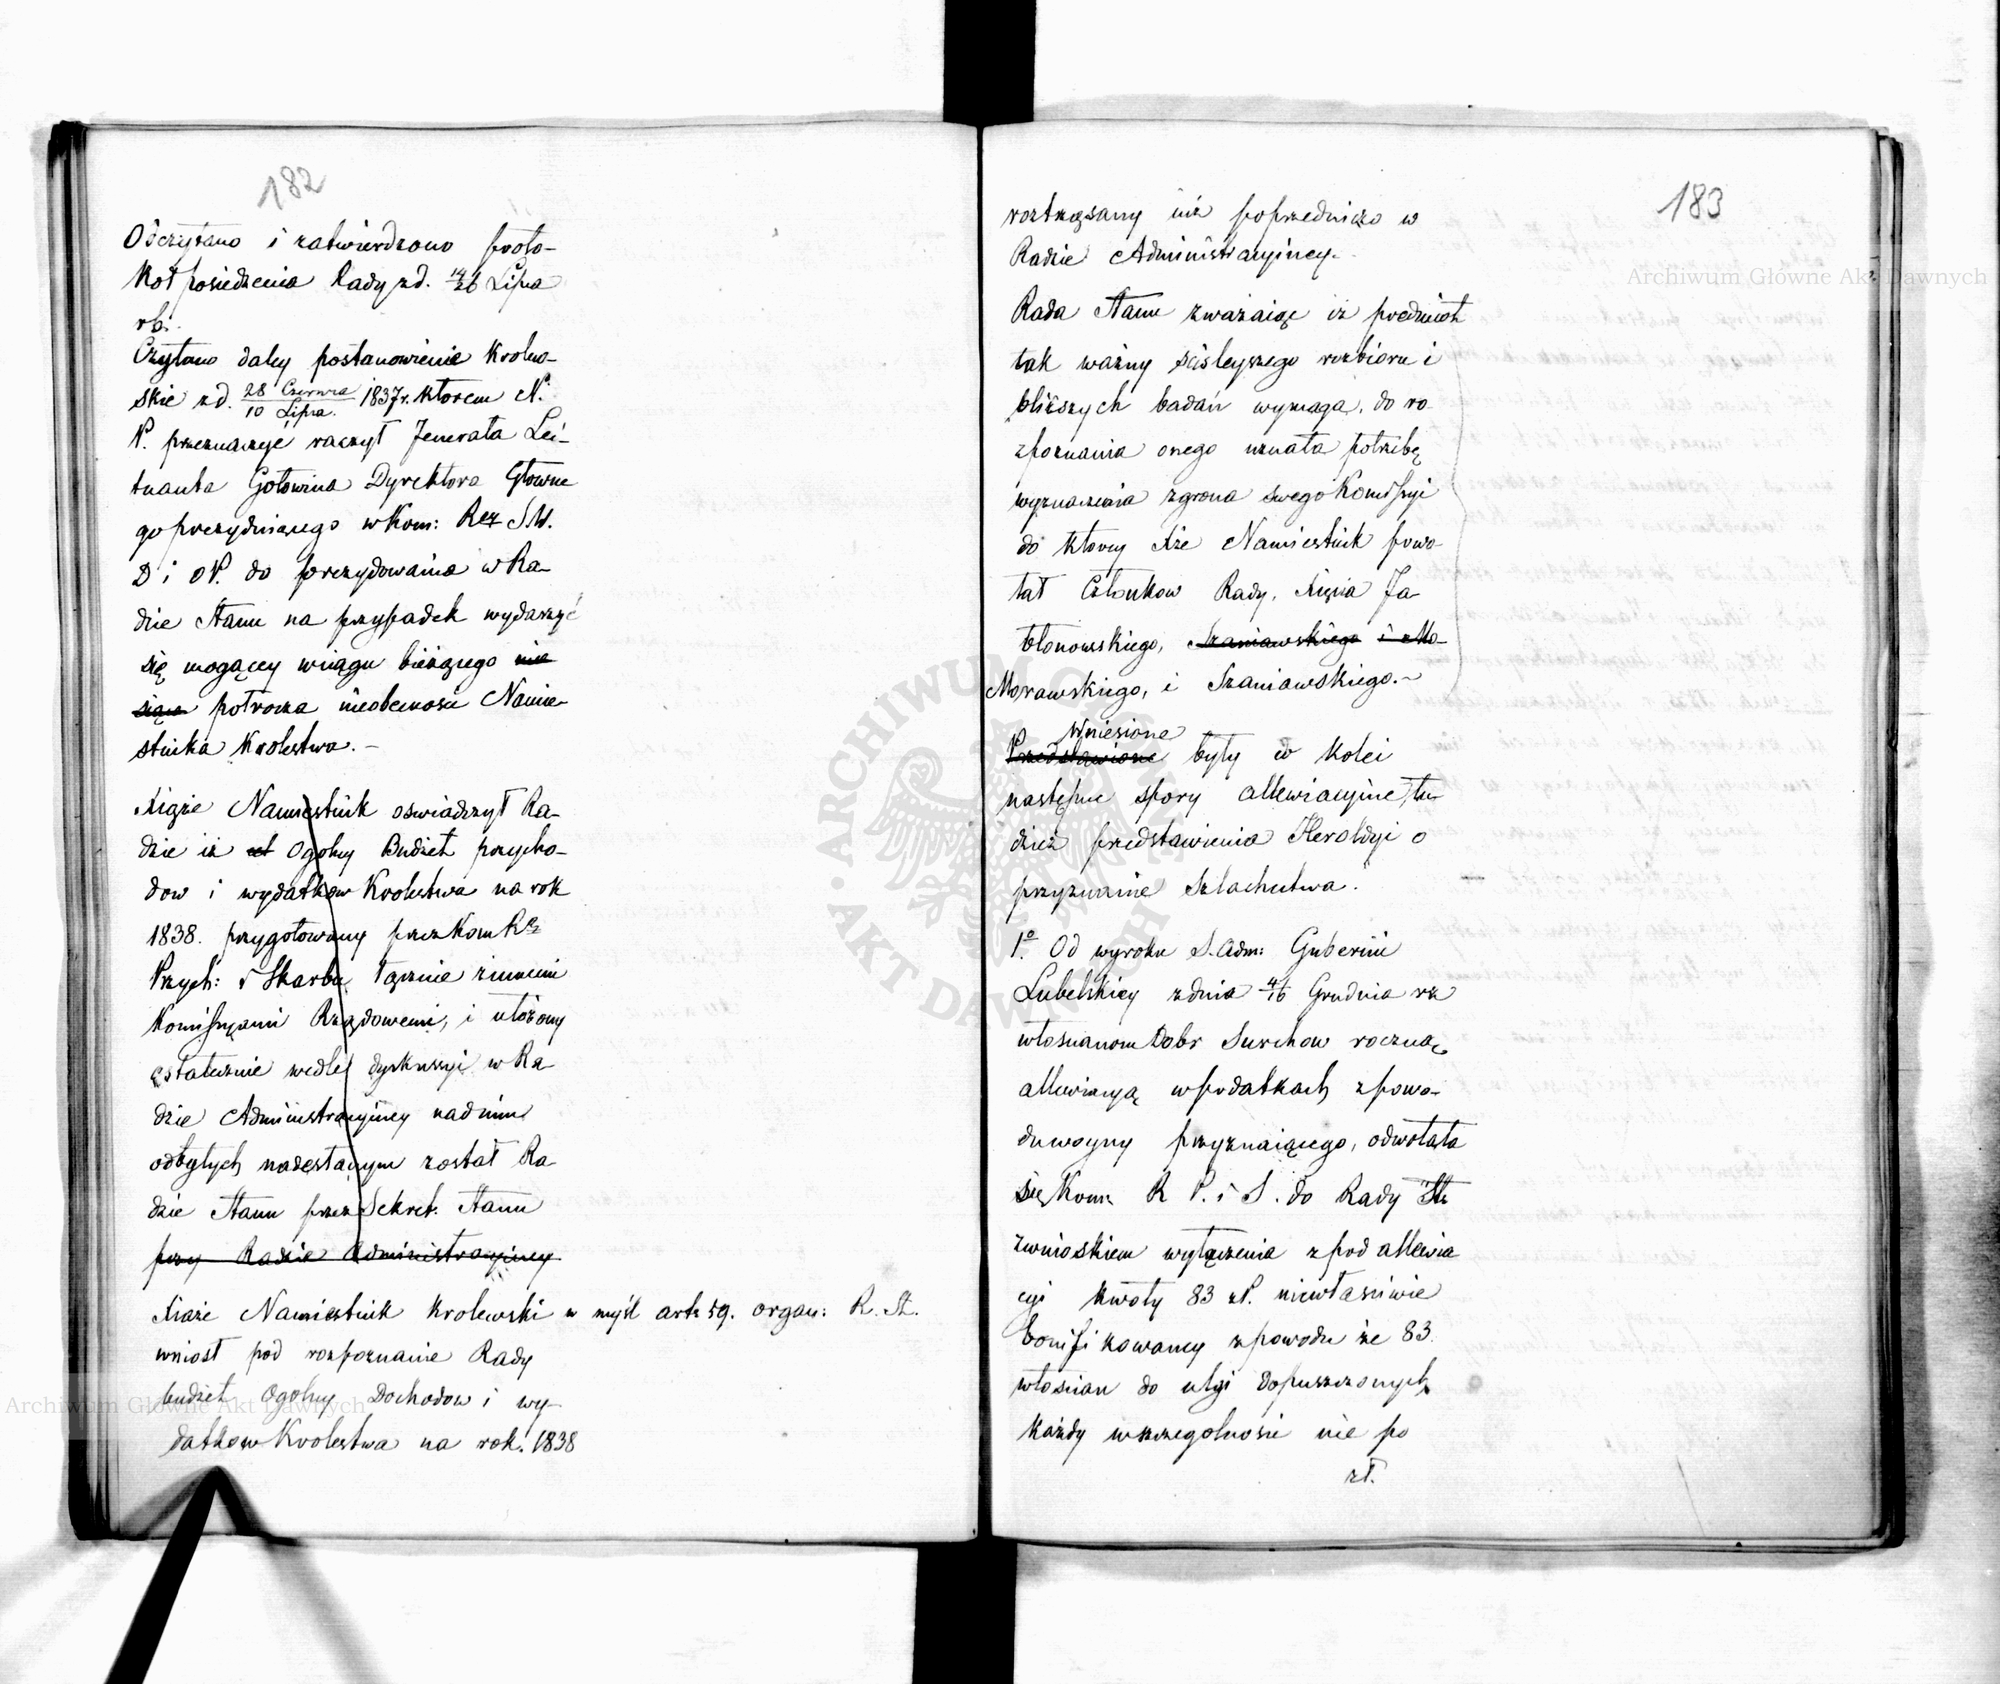 182
Odczytano i zatwierdzono proto-
kół posiedzenia Rady zd. 14/26 Lipca
rb.
Czytano daley postanowienie Krolew-
skie z d. 28 Czerwca / 10 Lipca 1837 r. ktorem N.
P. przeznaczyć raczył Jenerała Lei-
tnanta Gołowina Dyrektora Głowne
go prezyduiącego w Kom: Rez S.W.
D i OP. do prezydowania w Ra-
dzie Stanu na przypadek wydarzyć
się mogącey wciągu bieżącego mie
siąca połrocza nieobecnosci Namie-
stnika Krolestwa. -
Xiąże Namiestnik oswiadczył Ra-
dzie iż Ogolny Budżet przycho-
dow i wydatkow Krolestwa na rok
1838. przygotowany przez Kom Rz
Przych: i Skarbu, łącznie z innemi
Kommissyami Rządowemi, i ułożony
ostatecznie wedle dyskussyi w Ra-
dzie Administracyiney nad nim
odbytych nadesłanym został Ra-
dzie Stanu przez Sekret. Stanu
przy Radzie Administracyiney.
Xiąże Namiestnik Krolewski w myśl art: 59. organ: R. St.
wniosł pod rozpoznanie Rady
budżet Ogolny Dochodow i wy-
datkow Krolestwa na rok 1838
183
roztrząsany iuż poprzedniczo w
Radzie Administracyiney.
Rada Stanu zważaiąc iż przedmiot
tak ważny scisleyszego rozbioru i
bliższych badań wymaga, do ro-
zpoznania onego uznała potrzebę
wyznaczenia z grona swego Komissyi
do ktorey Xże Namiestnik powo-
łał Członkow Rady, Xięcia Ja
błonowskiego, Szaniawskiego i Mo-
Morawskiego, i Szaniawskiego. -
Wniesione
Przedstawione były w kolei
następne spory allewiacyine, tu-
dzież przedstawienia Heroldyi o
przyznanie Szlachectwa.
1o. Od wyroku S. Adm: Gubernii
Lubelskiey zdnia 4/16 Grudnia rz
włoscianom Dobr Surchow roczną
allewiacyą w podatkach z powo-
du woyny przyznaiącego, odwołała
się Kom: R P. i S. do Rady St:
z wnioskiem wyłączenia z pod allewia
cyi kwoty 83 zł. niewłasciwie
bonifikowaney z powodu że 83.
włoscian do ulgi dopuszczonych
każdy w szczegolnosci nie po
zł.
Archiwum Główne Akt Dawnych
Archiwum Główne Akt Dawnych
ARCHIWUM GŁÓWNE AKT DAWNYCH